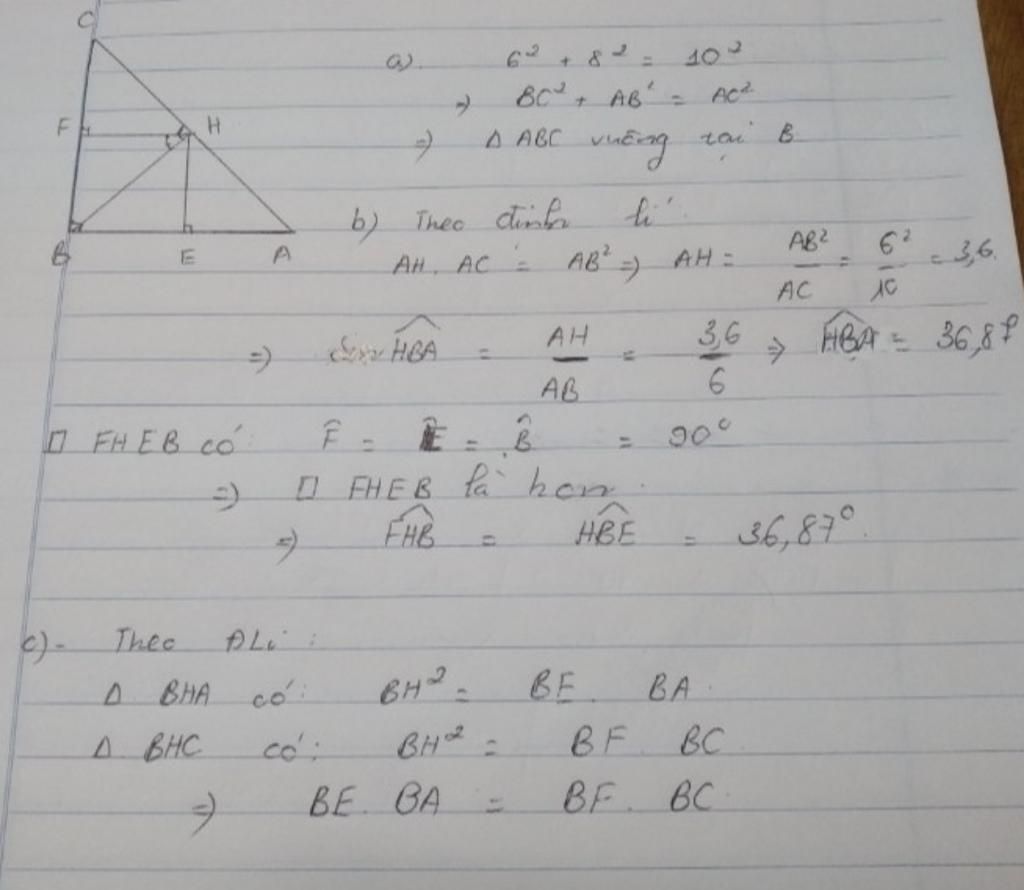 C
F
H
B
E
A
a). 6² + 8² = 10²
=> BC² + AB² = AC²
=> Δ ABC vuông tại B
b) Theo định lí
AH. AC = AB² => AH = AB²/AC = 6²/10 = 3,6.
=> sin HBA = AH/AB = 3,6/6 => HBA = 36,87°
□ FHEB có: F̂ = Ê = B̂ = 90°
=> □ FHEB là hcn.
=> FHB = HBE = 36,87°.
c)- Theo ĐLí:
Δ BHA có: BH² = BE. BA.
Δ BHC có: BH² = BF. BC
=> BE. BA = BF. BC.